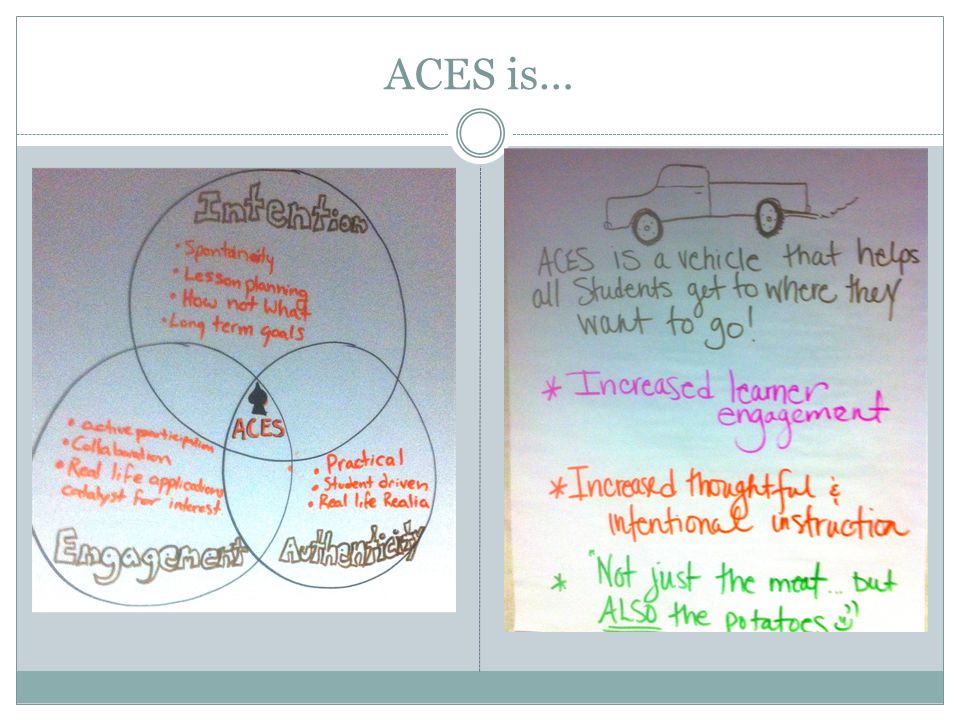 ACES is...
Intention
• Spontaneity
• Lesson planning
• How not What
• Long term goals
ACES
• active participation
• Collaboration
• Real life application
catalyst for interest
Engagement
• Practical
• Student driven
• Real life Realia
Authenticity
ACES is a vehicle that helps
all Students get to where they
want to go!
* Increased learner
engagement
* Increased thoughtful &
intentional instruction
* "Not just the meat... but
ALSO the potatoes"